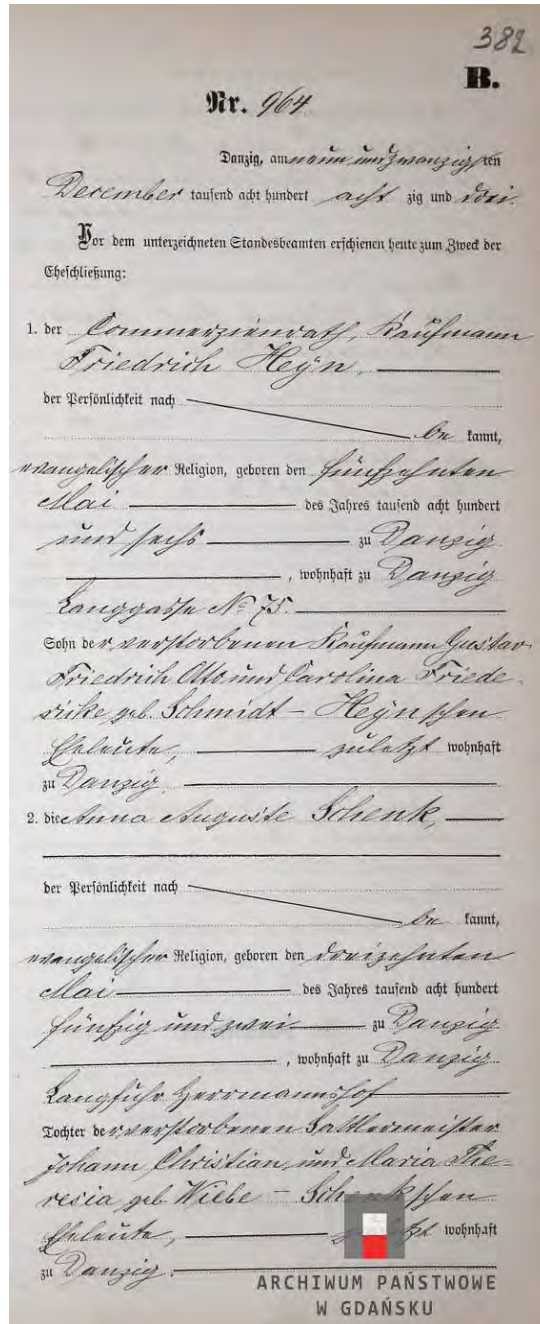 382
B.
Nr. 964
Danzig, am neun und zwanzigsten
December tausend acht hundert acht zig und drei.
Vor dem unterzeichneten Standesbeamten erschienen heute zum Zweck der
Eheschließung:
1. der Commerzienrath, Kaufmann
Friedrich Heyn,
der Persönlichkeit nach
be kannt,
evangelischer Religion, geboren den fünfzehnten
Mai des Jahres tausend acht hundert
und sechs zu Danzig
, wohnhaft zu Danzig
Langgasse No 75.
Sohn der verstorbenen Kaufmann Gustav
Friedrich Otto und Carolina Friede-
rike geb. Schmidt - Heyn'schen
Eheleute, zuletzt wohnhaft
zu Danzig.
2. die Anna Auguste Schenk,
der Persönlichkeit nach
be kannt,
evangelischer Religion, geboren den dreizehnten
Mai des Jahres tausend acht hundert
fünfzig und zwei zu Danzig
, wohnhaft zu Danzig
Langfuhr Herrmannshof
Tochter der verstorbenen Sattlermeister
Johann Christian und Maria The-
resia geb. Wiebe - Schenk'schen
Eheleute, zuletzt wohnhaft
zu Danzig.
ARCHIWUM PAŃSTWOWE
W GDAŃSKU